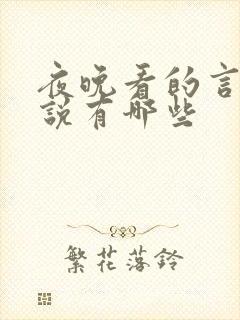 夜晚看的言
說有哪些
繁花落鈴